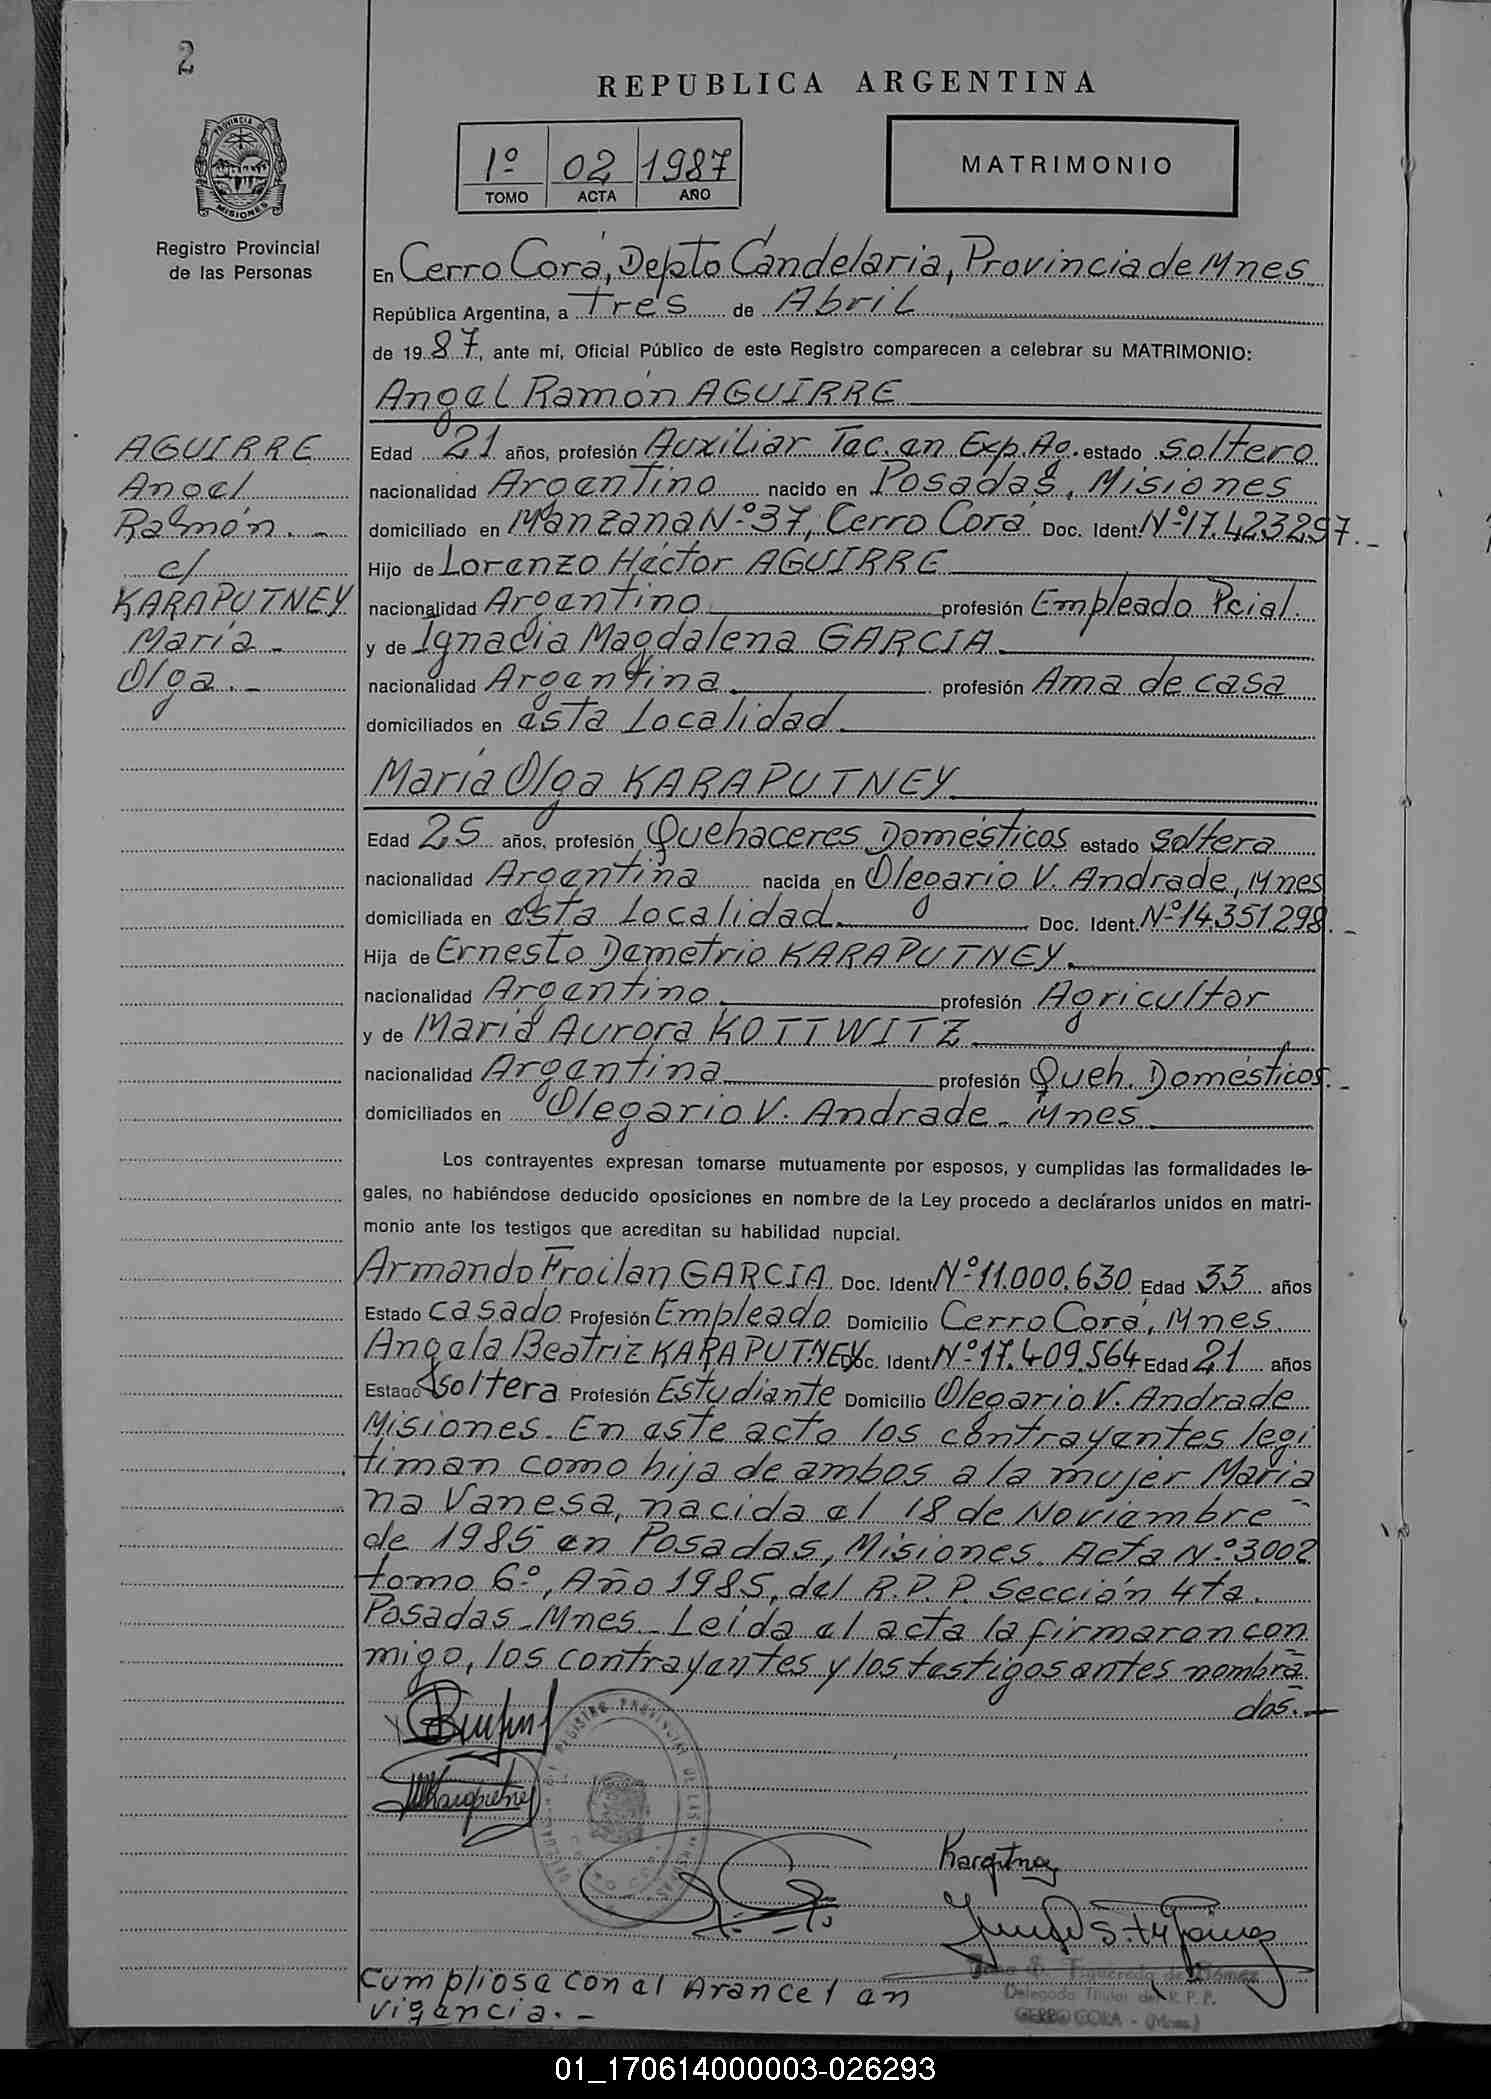 2
REPUBLICA ARGENTINA
PROVINCIA DE
MISIONES
Registro Provincial
de las Personas
1º 02 1987
TOMO ACTA AÑO
MATRIMONIO
En Cerro Corá, Depto Candelaria, Provincia de Mnes
República Argentina, a Tres de Abril
de 1987, ante mí, Oficial Público de este Registro comparecen a celebrar su MATRIMONIO:
Angel Ramón AGUIRRE
AGUIRRE
Angel
Ramón. -
c/
KARAPUTNEY
María -
Olga. -
Edad 21 años, profesión Auxiliar Tec. en Exp. Ag. estado soltero
nacionalidad Argentino nacido en Posadas, Misiones
domiciliado en Manzana Nº 37, Cerro Corá Doc. Ident. Nº 17.423297. -
Hijo de Lorenzo Héctor AGUIRRE
nacionalidad Argentino profesión Empleado Pcial.
y de Ignacia Magdalena GARCIA
nacionalidad Argentina profesión Ama de casa
domiciliados en esta Localidad
María Olga KARAPUTNEY
Edad 25 años, profesión Quehaceres Domésticos estado soltera
nacionalidad Argentina nacida en Olegario V. Andrade, Mnes
domiciliada en esta Localidad. Doc. Ident. Nº 14.351.298. -
Hija de Ernesto Demetrio KARAPUTNEY.
nacionalidad Argentino profesión Agricultor
y de María Aurora KOTTWITZ
nacionalidad Argentina profesión Queh. Domésticos. -
domiciliados en Olegario V. Andrade - Mnes
Los contrayentes expresan tomarse mutuamente por esposos, y cumplidas las formalidades le-
gales, no habiéndose deducido oposiciones en nombre de la Ley procedo a declárarlos unidos en matri-
monio ante los testigos que acreditan su habilidad nupcial.
Armando Froilan GARCIA Doc. Ident. Nº 11.000.630 Edad 33 años
Estado casado Profesión Empleado Domicilio Cerro Corá, Mnes.
Angela Beatriz KARAPUTNEY Doc. Ident. Nº 17.409.564 Edad 21 años
Estado soltera Profesión Estudiante Domicilio Olegario V. Andrade
Misiones. En este acto los contrayentes legi
timan como hija de ambos a la mujer Maria
na Vanesa, nacida el 18 de Noviembre
de 1985 en Posadas, Misiones. Acta Nº 3002
tomo 6º, Año 1985, del R.P.P. Sección 4ta.
Posadas - Mnes. Leida el acta la firmaron con
migo, los contrayentes y los testigos antes nombra
dos. -
Delegada Titular del R.P.P.
CERRO CORA - (Mnes)
Cumpliose con el Arancel en
vigencia. -
01_170614000003-026293